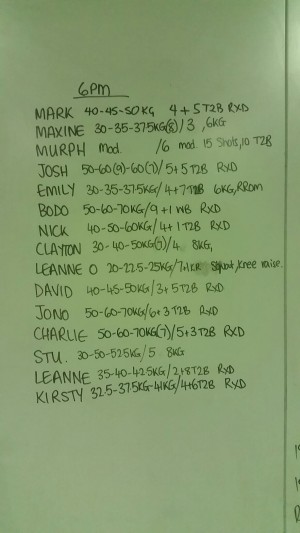 6PM
MARK 40-45-50KG 4+5T2B RXD
MAXINE 30-35-37.5KG(8)/3, 6KG
MURPH mod. /6 mod. 15 Shots, 10 T2B
JOSH 50-60(9)-60(7)/5+5T2B RXD
EMILY 30-35-37.5KG/4+7T2B 6KG, RROM
BODO 50-60-70KG/9+1 WB RXD
NICK 40-50-60KG/4+1T2B RXD
CLAYTON 30-40-50KG(5)/4 8KG,
LEANNE O 20-22.5-25KG/7+1 Squat, Knee raise.
DAVID 40-45-50KG/3+5T2B RXD
JONO 50-60-70KG/6+3T2B RXD
CHARLIE 50-60-70KG(7)/5+3T2B RXD
STU. 30-50-52.5KG/5 8KG
LEANNE 35-40-42.5KG/2+8T2B RXD
KIRSTY 32.5-37.5KG-41KG/4+6T2B RXD